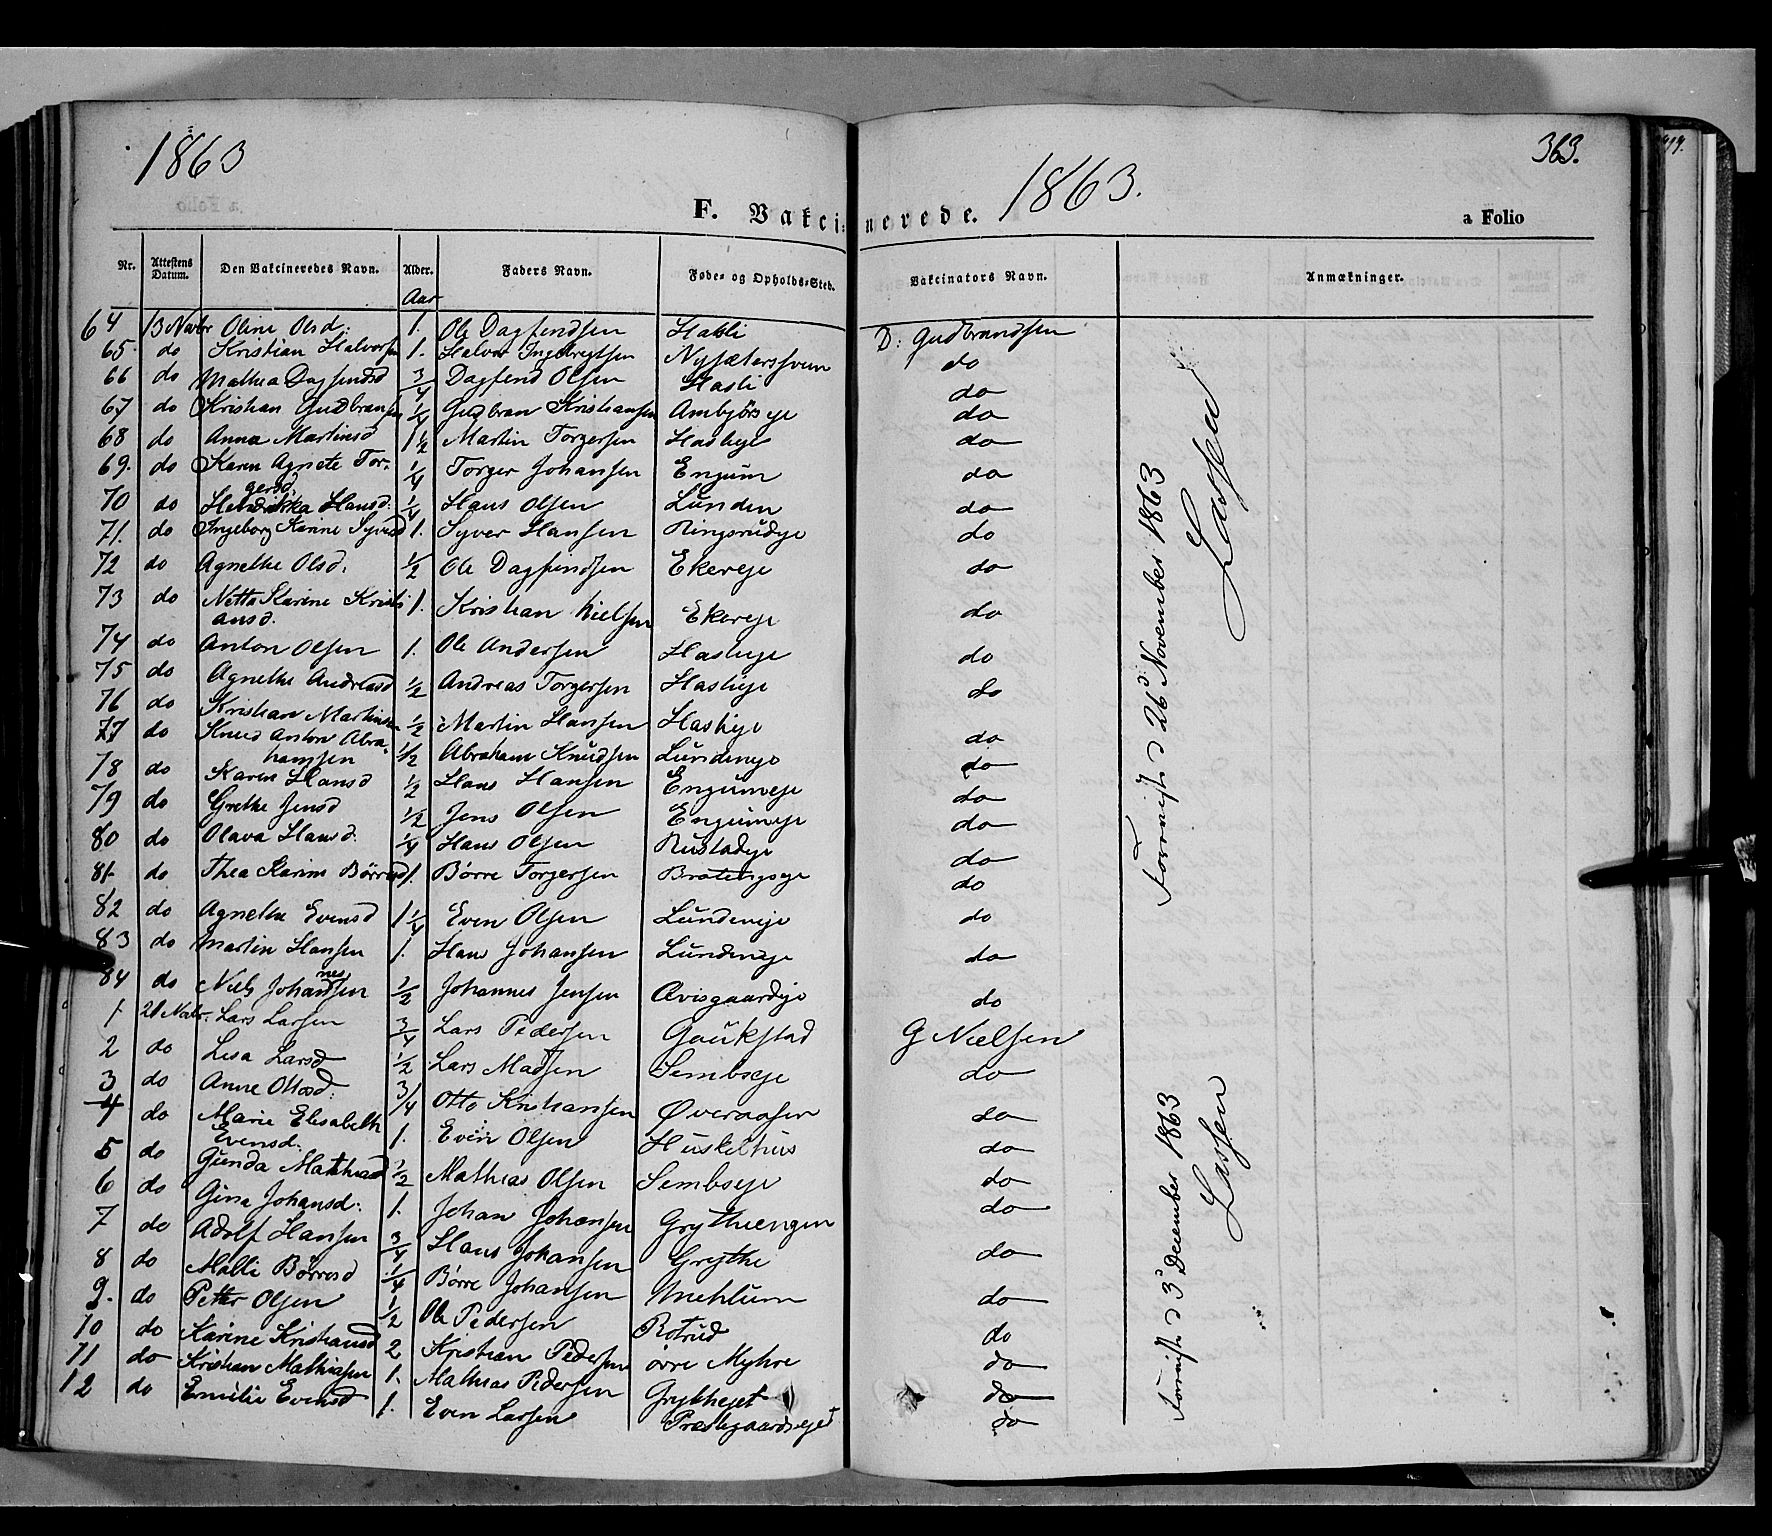 1863
1863.
363.
F. Vakcinerede.
a Folio
Nr. Attestens Datum. Den Vakcineredes Navn. Alder. Faders Navn. Føde- og Opholds-Sted. Vakcinators Navn. Anmærkninger.
Aar
64 13 Novbr Oline Olsd: 1. Ole Dagfindsen Hasli D: Gudbrandsen
65. do Kristian Halvorsen 1. Halvor Ingebregtsen do
66 do Mathea Dagfindsd 3/4 Dagfind Olsen Hasli do
67 do Kristian Gudbransen 1/4 Gudbran Kristiansen Ambjörseje do
68 do Anna Martinsd 1 1/2 Martin Torgersen Haslieje do
69. do Karen Agnete Tor-
gersd 1/4 Torger Johansen Engum do
70 do Hendrikka Hansd: 1/4 Hans Olsen Lunden do
71. do Ingeborg Karine Syversd 1. Syver Hansen Ringsrudeje do
72 do Agnethe Olsd. 1/2 Ole Dagfindsen Ekereje do
73 do Netta Karine Kristi
ansd. 1. Kristian Nielsen Ekereje do
74 do Anton Olsen 1. Ole Andersen Haslieje do
75 do Agnethe Andreasd 1/2 Andreas Torgersen Haslieje do
76 do Kristian Martinsen 1/2 Martin Hansen Haslieje do
77 do Knud Anton Abra-
hamsen 1/2 Abraham Knudsen Lundeneje do
78 do Karen Hansd 1/2 Hans Hansen Engumeje do
79 do Grethe Jensd 1/2 Jens Olsen Engumeje do
80 do Olava Hansd: 1/4 Hans Olsen Rustadeje do
81. do Thea Karine Börresd 1. Börre Torgersen Bratengseje do
82 do Agnethe Evensd 1 1/4 Even Olsen Lundeneje do
83 do Martin Hansen 1. Hans Johansen Lundeneje do
84 do Niels Johannesen 1/2 Johannes Jensen Ævisgaardeje do
1. 21 Novbr. Lars Larsen 3/4 Lars Pedersen Gaukstad G Nielsen
2 do Lisa Larsd 1/2 Lars Madsen Sembseje do
3 do Anne Ottosd: 3/4 Otto Kristiansen Øveraasen do
4 do Marie Elisabeth
Evensd. 1. Even Olsen Huskelhus do
5 do Gunda Mathiasd 1/2 Mathias Olsen Sembseje do
6 do Gina Johansd: 1. Johan Johansen Grytheengen do
7 do Adolf Hansen 3/4 Hans Johansen Grythe do
8 do Malli Börresd 1/4 Börre Johansen Mehlum do
9. do Petter Olsen 1/2 Ole Pedersen Rotrud do
10 do Karine Kristiansd 2 Kristian Pedersen övre Myhre do
11 do Kristian Mathiasen 1. Mathias Pedersen Grythejet do
12 do Emilie Evensd 1. Even Larsen Præstegaardsejet do
26d November 1863
Lassen
3d December 1863
Lassen